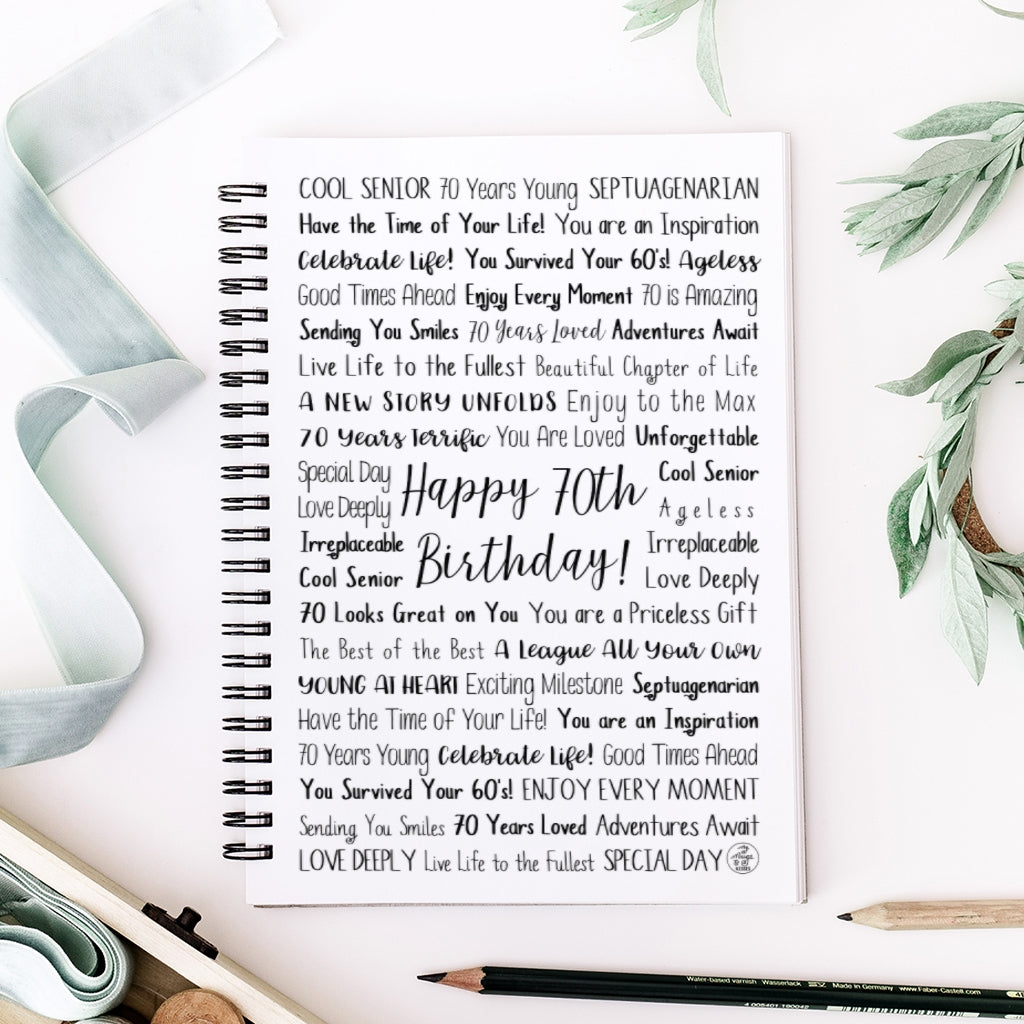 COOL SENIOR 70 Years Young SEPTUAGENARIAN
Have the Time of Your Life! You are an Inspiration
Celebrate Life! You Survived Your 60's! Ageless
Good Times Ahead Enjoy Every Moment 70 is Amazing
Sending You Smiles 70 Years Loved Adventures Await
Live Life to the Fullest Beautiful Chapter of Life
A NEW STORY UNFOLDS Enjoy to the Max
70 Years Terrific You Are Loved Unforgettable
Special Day Happy 70th Cool Senior
Love Deeply Ageless
Irreplaceable Birthday! Irreplaceable
Cool Senior Love Deeply
70 Looks Great on You You are a Priceless Gift
The Best of the Best A League All Your Own
YOUNG AT HEART Exciting Milestone Septuagenarian
Have the Time of Your Life! You are an Inspiration
70 Years Young Celebrate Life! Good Times Ahead
You Survived Your 60's! ENJOY EVERY MOMENT
Sending You Smiles 70 Years Loved Adventures Await
LOVE DEEPLY Live Life to the Fullest SPECIAL DAY
Water-based varnish Wasserlack Made in Germany www.Faber-Castell.com
4 005401 190042